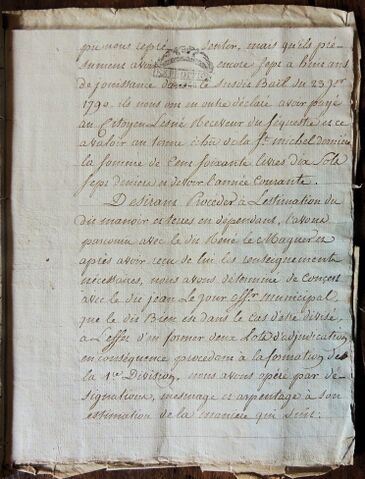 que nous représenter, mais qu'ils pré-
sument avoir encore sept à huit ans
de jouissance dans le susdit Bail du 23 9bre
1790. ils nous ont en outre déclaré avoir payé
au Citoyen Receveur du sequestre et ce
a valoir au terme échu de la St. michel derniere
la somme de Cent soixante livres dix Sols
sept deniers et devoir l'année Courante.
Desirans Proceder à Lestimation du
dit manoir et terres en dependant, l'avons
parcouru avec le dit René le Maguer et
après avoir recu de lui les renseignements
nécessaires, nous avons determiné de Concert
avec le dit jean Le jour offer. municipal
que le dit Bien est dans le cas d'etre divisé,
a L'effet d'en former deux Lots d'adjudication
en conséquence procedant à la formation de
la 1re Division, nous avons opéré par dé-
signation, mesurage et arpentage à son
estimation de la maniere qui suit: